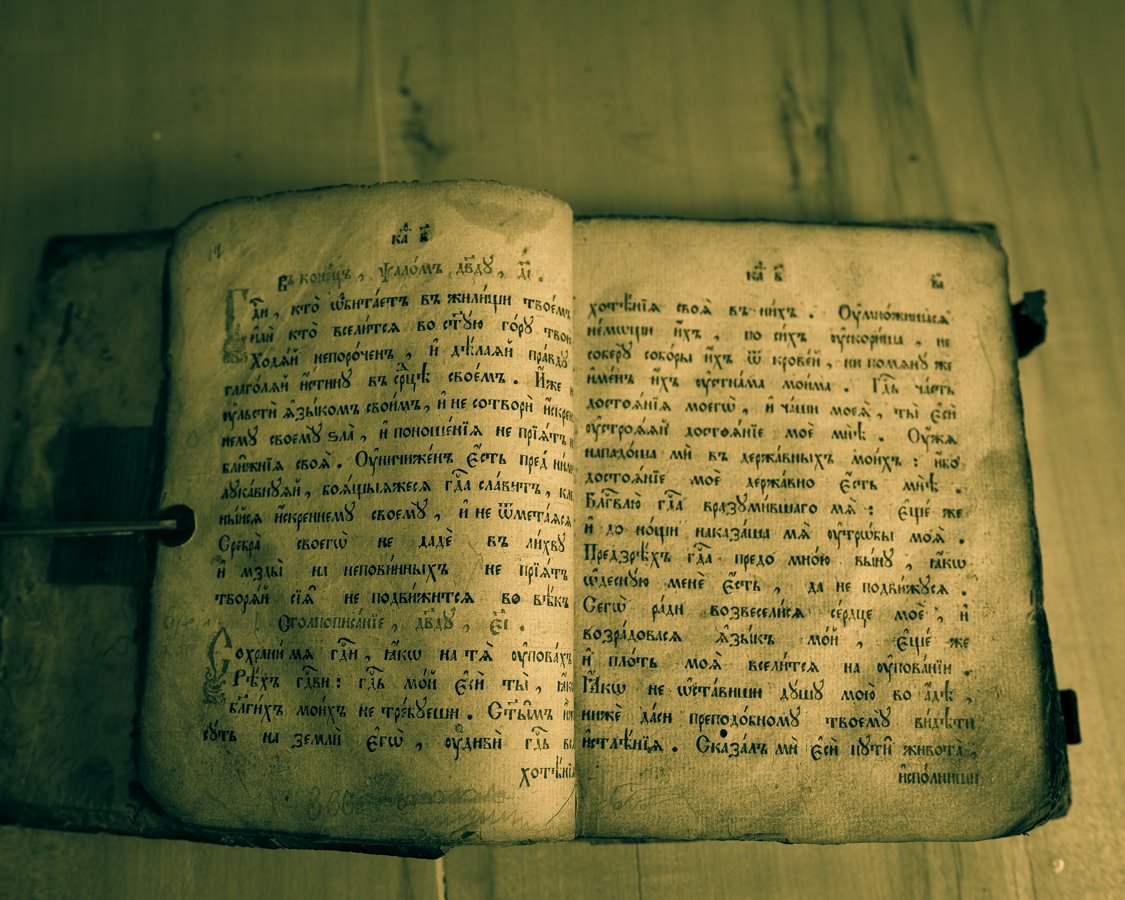 ка҃ в҃
Въ коне́цъ, ѱало́мъ дв҃ду, д҃і.
Гд҃и, кто̀ ѡ҆бита́етъ въ жили́щи твое́мъ
и҆лѝ кто̀ всели́тсѧ во ст҃у́ю го́ру твою̀
Ходѧ́й непоро́ченъ, и҆ дѣ́лаѧй пра́вду
глаго́лѧй и҆́стину въ ср҃цѣ свое́мъ. И҆́же
ᲂу҆льстѝ ѧ҆зы́комъ свои́мъ, и҆ не сотворѝ и҆́скрен
нему своемꙋ̀ ѕла̀, и҆ поноше́нїѧ не прїѧ́тъ
бли́жнїѧ своѧ̀. Оу҆ничиже́нъ є҆́сть пред̾ ни́мъ
лука́внуѧй, боѧ́щыѧжесѧ гд҃а сла́витъ, кле
ны́йсѧ и҆́скреннему своемꙋ̀, и҆ не ѿмета́ѧсѧ
Сребра̀ своегѡ̀ не дадѐ въ ли́хву
и҆ мзды̀ на непови́нныхъ не прїѧ́тъ
творѧ́й сїѧ̑ не подви́житсѧ во вѣ́къ
Столпописа́нїе, дв҃ду, є҃і.
Сохрани́ мѧ гд҃и, ꙗ҆́кѡ на тѧ̀ ᲂу҆пова́хъ
Рѣ́хъ гд҃ви: гд҃ь мо́й є҆сѝ ты̀, ꙗ҆́кѡ
бл҃ги́хъ мои́хъ не тре́буеши. Ст҃ы́мъ и҆̀же
сꙋ́ть на землѝ є҆гѡ̀, ᲂу҆дивѝ гд҃ь всѧ̑
хотѣ́нїѧ
ка҃ в҃
хотѣ́нїѧ своѧ̑ въ ни́хъ. Оу҆мно́жишасѧ
не́мѡщи и҆́хъ, по си́хъ ᲂу҆скори́ша, не
соберу̀ собо́ры и҆́хъ ѿ крове́й, ни помѧну̀ же
и҆ме́нъ и҆́хъ ᲂу҆стна́ма мои́ма. Гд҃ь ча́сть
достоѧ́нїѧ моегѡ̀, и҆ ча́ши моеѧ̀, ты̀ є҆сѝ
ᲂу҆строѧ́ѧй достоѧ́нїе моѐ мнѣ̀. Оу҆́жѧ
нападо́ша мѝ въ держа́вныхъ мои́хъ: и҆́бо
достоѧ́нїе моѐ держа́вно є҆́сть мнѣ̀.
Бл҃гвлю̀ гд҃а вразуми́вшаго мѧ̀: є҆ще́ же
и҆ до но́щи наказа́ша мѧ̀ ᲂу҆трѡ́бы моѧ̑.
Предзрѣ́хъ гд҃а предо мно́ю вы́ну, ꙗ҆́кѡ
ѡ҆десну́ю менѐ є҆́сть, да не подви́жуcѧ.
Сегѡ̀ ра́ди возвесели́сѧ се́рдце моѐ, и҆
возра́довасѧ ѧ҆зы́къ мо́й, є҆ще́ же
и҆ пло́ть моѧ̀ всели́тсѧ на ᲂу҆пова́нїи.
Ꙗ҆́кѡ не ѡ҆ста́виши ду́шу мою̀ во а҆́дѣ,
нижѐ да́си преподо́бному твоемꙋ̀ ви́дѣти
и҆стлѣ́нїѧ. Сказа́лъ мѝ є҆сѝ путѝ живота̀,
и҆спо́лниши